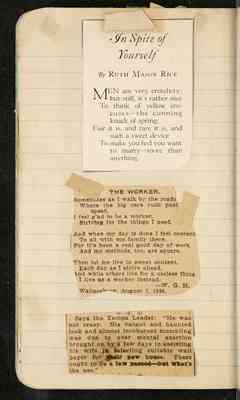 In Spite of
Yourself
By RUTH MASON RICE
MEN are very crotchety,
but still, it's rather nice
To think of yellow cro-
cuses—the cunning
knack of spring.
Fair it is, and rare it is, and
such a sweet device
To make you feel you want
to marry—more than
anything.
THE WORKER.
Sometimes as I walk by the roads
Where the big cars rush past
speed,
I feel glad to be a worker,
Striving for the things I need.
And when my day is done I feel content
To sit with my family there,
For it's been a real good day of work
And my methods, too, are square.
Then let me live in sweet content,
Each day as I strive ahead,
And while others live a useless thing
I live as a worker instead.
—W. G. H.
August 7, 1926.
Says the Tampa Leader: "He was
not crazy. His vacant and haunted
look and almost incoherent mumbling
was due to over mental exertion
brought on by a few days in assisting
his wife in selecting suitable wall
paper for their new home. There
ought to be a law passed—but what's
the use."